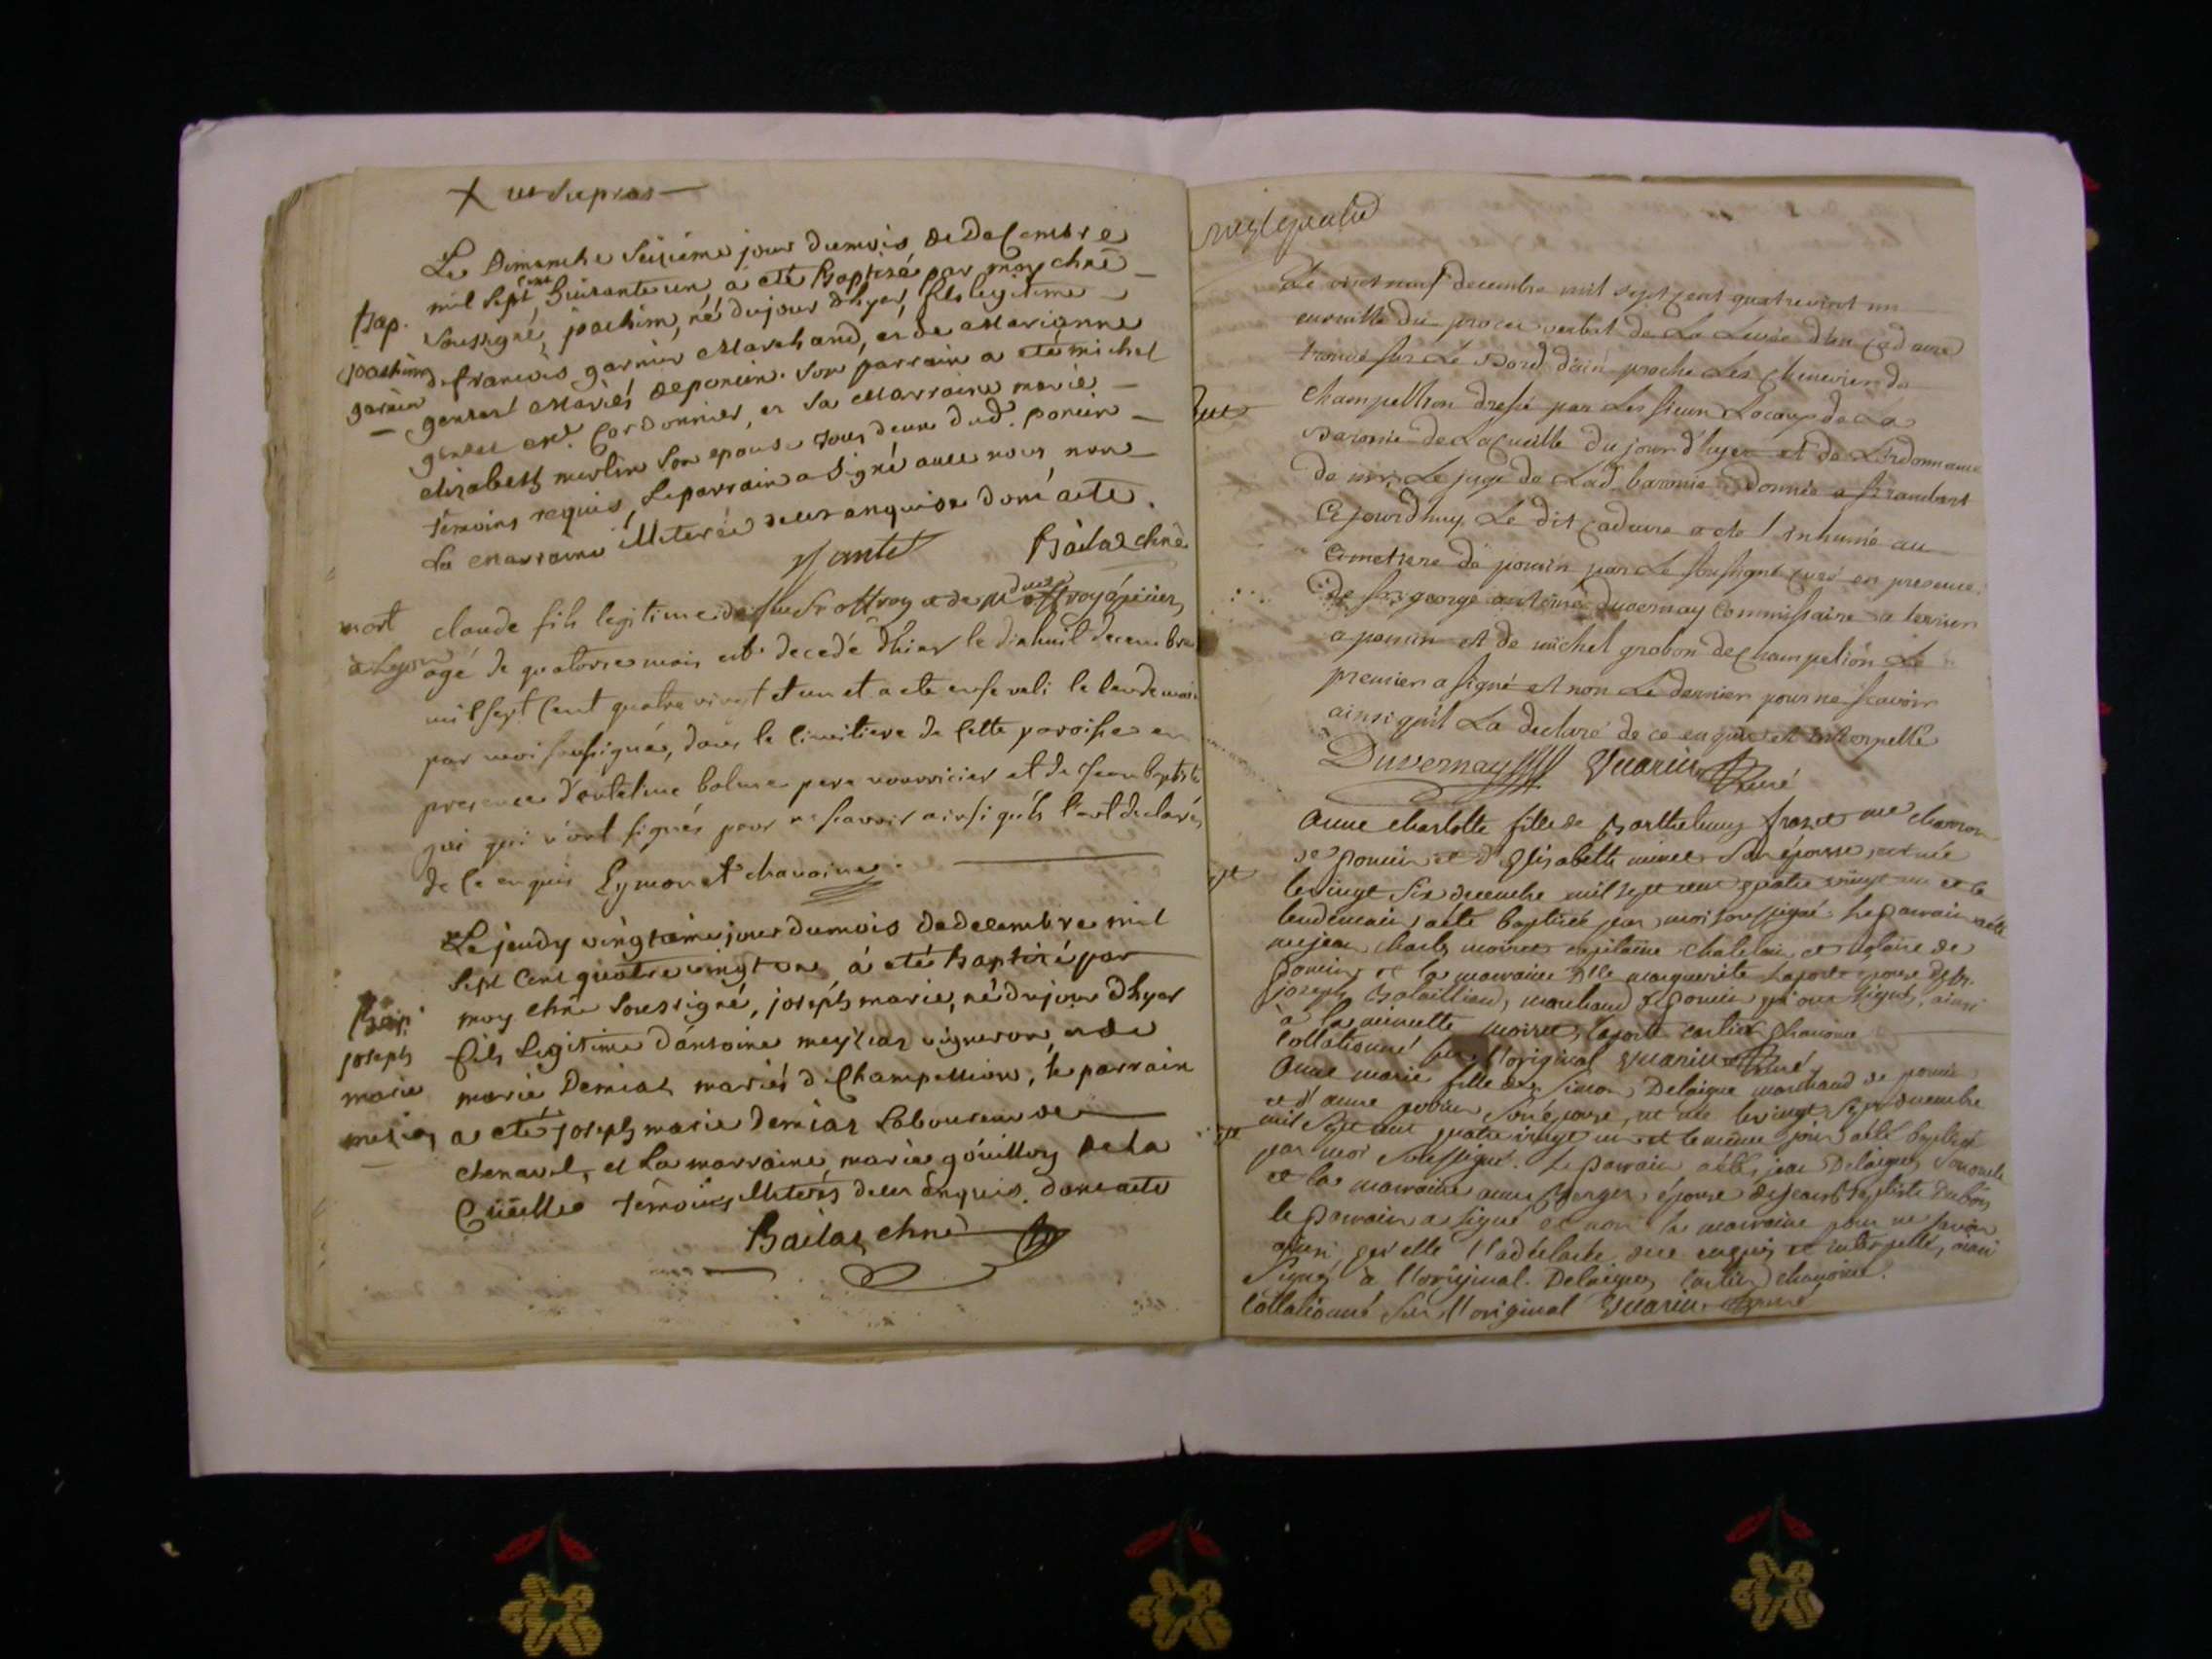 X ut supras
Le Dimanche seizième jour du mois de decembre
mil sept cent huitante un, a eté Baptisé par moy chñe
Bap. soussigné, joachim, né du jour d'hyer, fils legitime
joachim de françois garnier Marchand, et de Marianne
garnier gensest Mariés de poncin. son parrain a eté michel
Cordonnier, et sa Marraine marie
elizabeth merlin son epouse tous deux dud. poncin
temoins requis, le parrain a signé avec nous non
la Marraine illiterée de ce enquise dont acte.
Bailas chñe
mort claude fils legitime de
agé de quatorze mois est decedé d'hier le dixhuit decembre
mil sept cent quatre vingt et un et a eté enseveli le lendemain
par moi soussigné, dans le cimitiere de cette paroisse en
presence d'antelme bolme pere nourricier et de jean baptiste
qui n'ont signés pour ne scavoir ainsi qu'ils l'ont declarés
de ce enquis Eymonet chanoine
Le jeudy vingtième jour du mois de decembre mil
sept cent quatre vingt un, a eté baptisé par
Bap. moy chñe soussigné, joseph marie, né du jour d'hyer
joseph fils legitime d'antoine vigneron, et de
marie marie Demias mariés de Champellion, le parrain
a eté joseph marie demias laboureur de
chenavel, et la marraine, marie goüilloy de la
Cüeille temoins illiterés de ce enquis. dont acte
Bailas chñe
Le vint neuf decembre mil sept cent quatrevint un
ensuitte du procer verbal de La Levée d'un cadavre
trouvé sur Le Bord d'ain proche Les chenevier de
Champellion dressé par Les sieurs de La
Baronie de La Cueille du jour d'hyer et de L'ordonnance
de mr. Le juge de Lad. baronie Donnée a st rambert
Cejourdhuy Le dit cadavre a eté inhumé au
Cimetiere de poncin par Le soussigné curé en presence
de sr. george antoine Duvernay Commissaire a terrier
a poncin et de michel grobon de Champelion Le
premier a signé et non Le dernier pour ne scavoir
ainsi qu'il La declaré de ce enquis et interpellé
Duvernay Vuarin Curé
Anne charlotte fille de Barthelemy me charron
de poncin et d'Elisabette son épouse, est née
le vingt six decembre mil sept cent quatre vingt un et le
lendemain a été baptisée par moi soussigné. Le parrain a été
me jean charles moiret capitaine chatelain et notaire de
poncin et la marraine dlle marguerite Laporte epouse de sr.
joseph marchand de poncin qui ont signés, ainsi
à la minutte moiret, laporte cartier chanoine
Collationné sur l'original Vuarin Curé
Anne marie fille de sr. simon Delaigue marchand de poncin
et d'anne son épouse, est née le vingt sept decembre
mil sept cent quatre vingt un et le même jour a été baptisée
par moi soussigné. Le parrain a été jean Delaigue, son oncle
et la marraine anne Berger épouse de jean baptiste dubois
le parrain a signé et non la marraine pour ne savoir
ainsi qu'elle l'a déclaré de ce enquis et interpellée, ainsi
Signés à l'original. Delaigue, cartier chanoine.
Collationné sur l'original Vuarin Curé